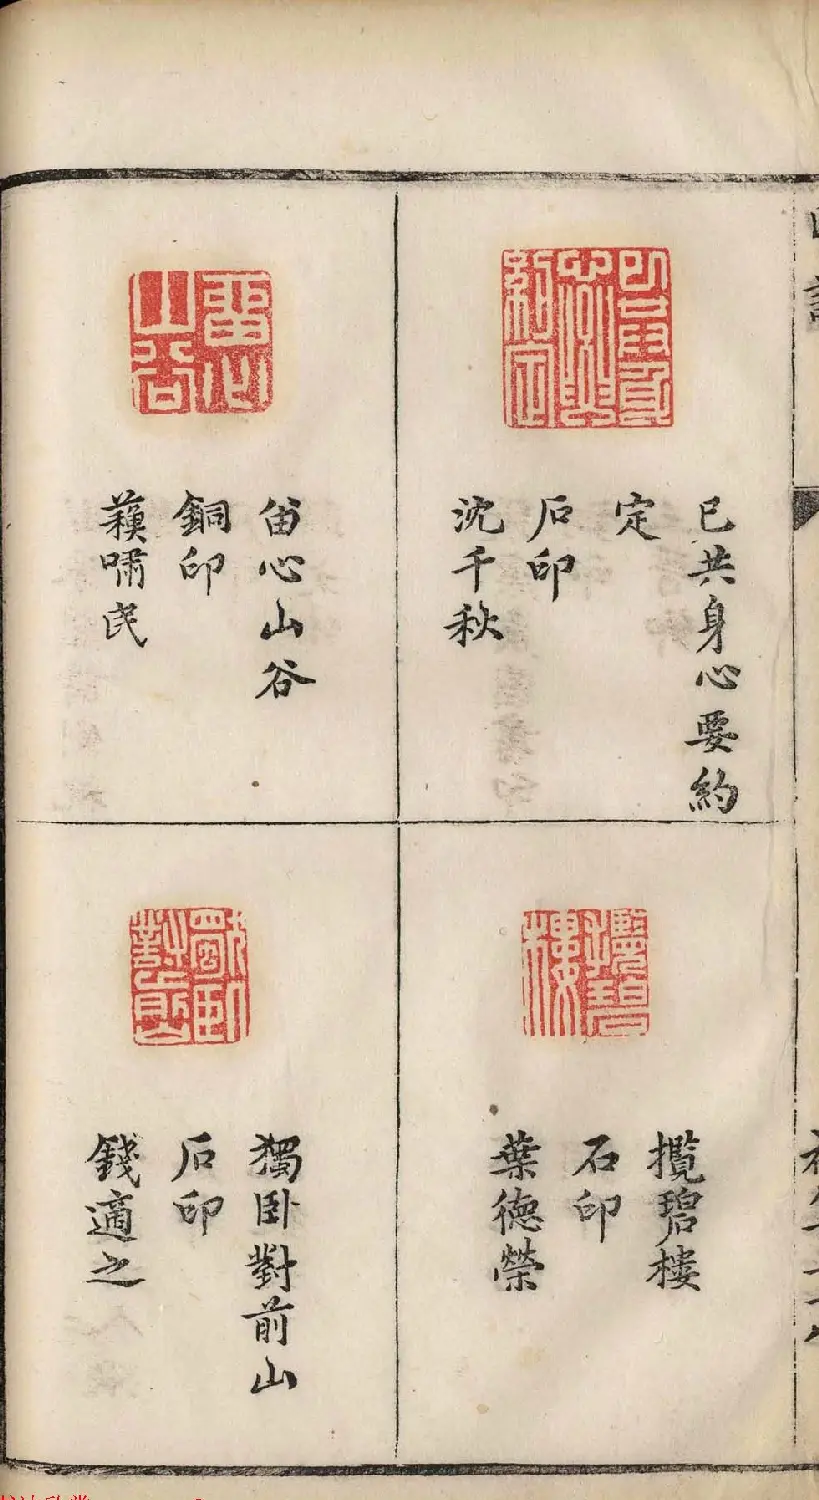 已共身心要約
定
石印
沈千秋
畱心山谷
銅印
蘓嘯民
攬碧樓
石印
葉德榮
獨卧對前山
石印
錢適之